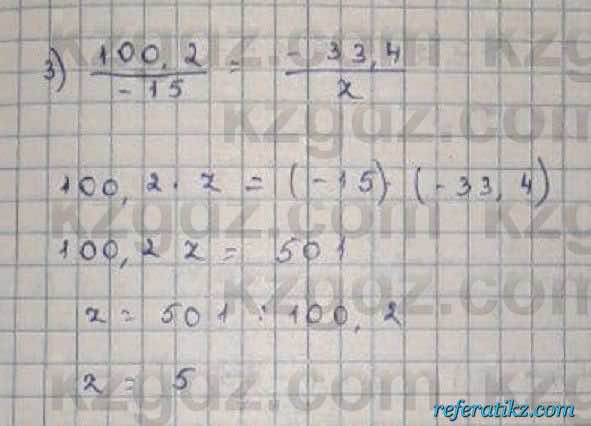 3) 100,2 / -15 = -33,4 / x
100,2 · x = (-15) · (-33,4)
100,2 x = 501
x = 501 : 100,2
x = 5
kzgdz.com
referatikz.com